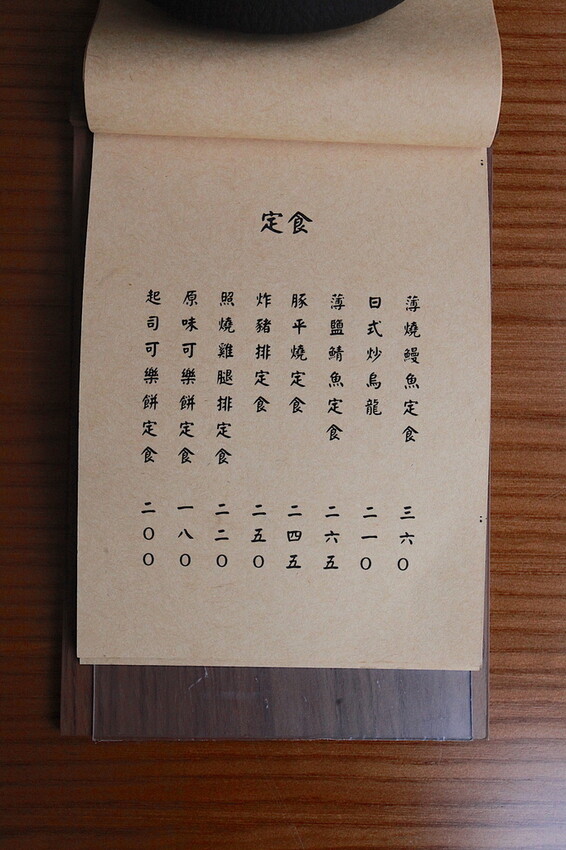 定食
薄燒鰻魚定食 三六〇
日式炒烏龍 二一〇
薄鹽鯖魚定食 二六五
豚平燒定食 二四五
炸豬排定食 二五〇
照燒雞腿排定食 二二〇
原味可樂餅定食 一八〇
起司可樂餅定食 二〇〇